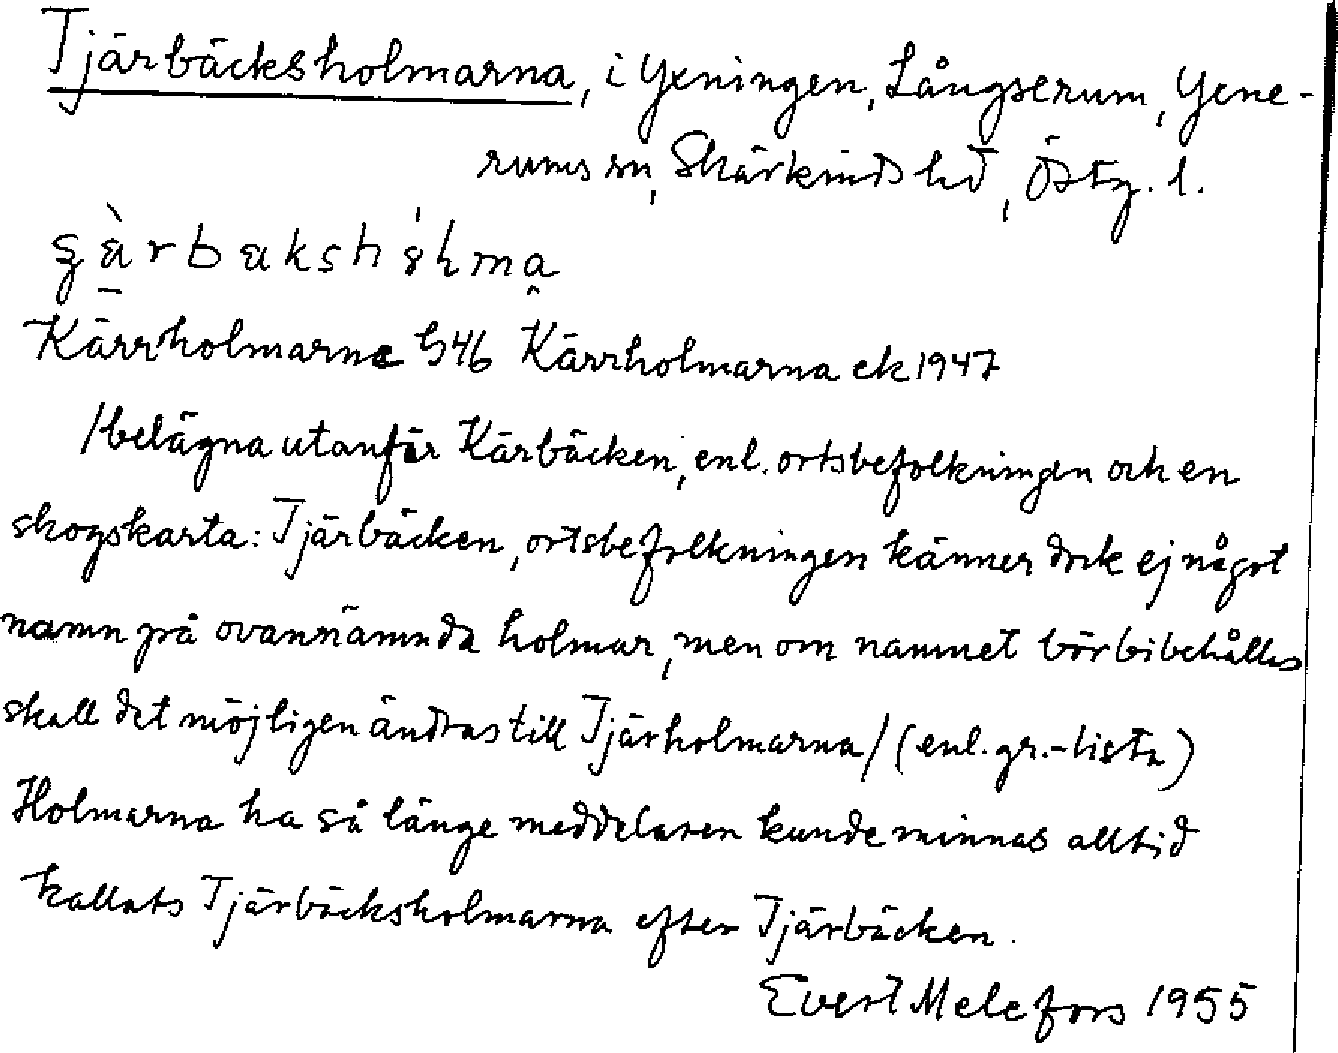 Tjärbäcksholmarna, i Yxningen, Långserum, Gene-
rums sn, Skärkinds hd, Östg. l.
Kärrholmarne G46 Kärrholmarna ek 1947
/belägna utanför Kärbäcken, enl. ortsbefolkningen och en
skogskarta: Tjärbäcken, ortsbefolkningen känner dock ej något
namn på ovannämnda holmar, men om namnet bör bibehålles
skall det möjligen ändras till Tjärholmarna/ (enl. gr.-lista)
Holmarna ha så länge meddelaren kunde minnas alltid
kallats Tjärbäcksholmarna efter Tjärbäcken.
Evert Melefors 1955